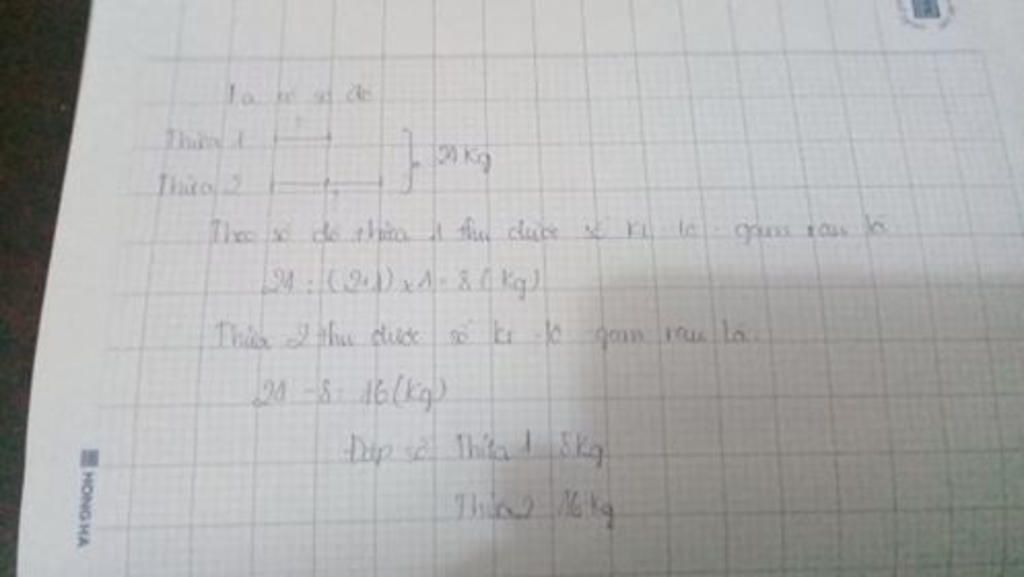 Ta có sơ đồ
Thửa 1 ?
Thửa 2 ? 24 Kg
Theo sơ đồ thửa 1 thu được số ki lô gam rau là
24 : (2+1) x 1 = 8 (Kg)
Thửa 2 thu được số ki lô gam rau là:
24 - 8 = 16 (Kg)
Đáp số Thửa 1 8Kg
Thửa 2 16 kg
HONG HA